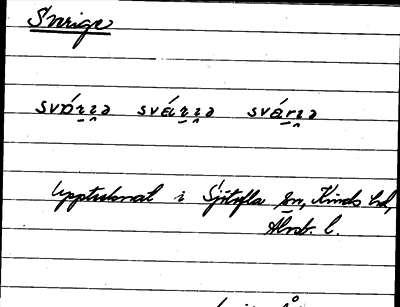 Sverige
svárɿə svárɿə svárɿə
Upptecknat i Sjötofta sn, Kinds hd,
Älvsb. l.